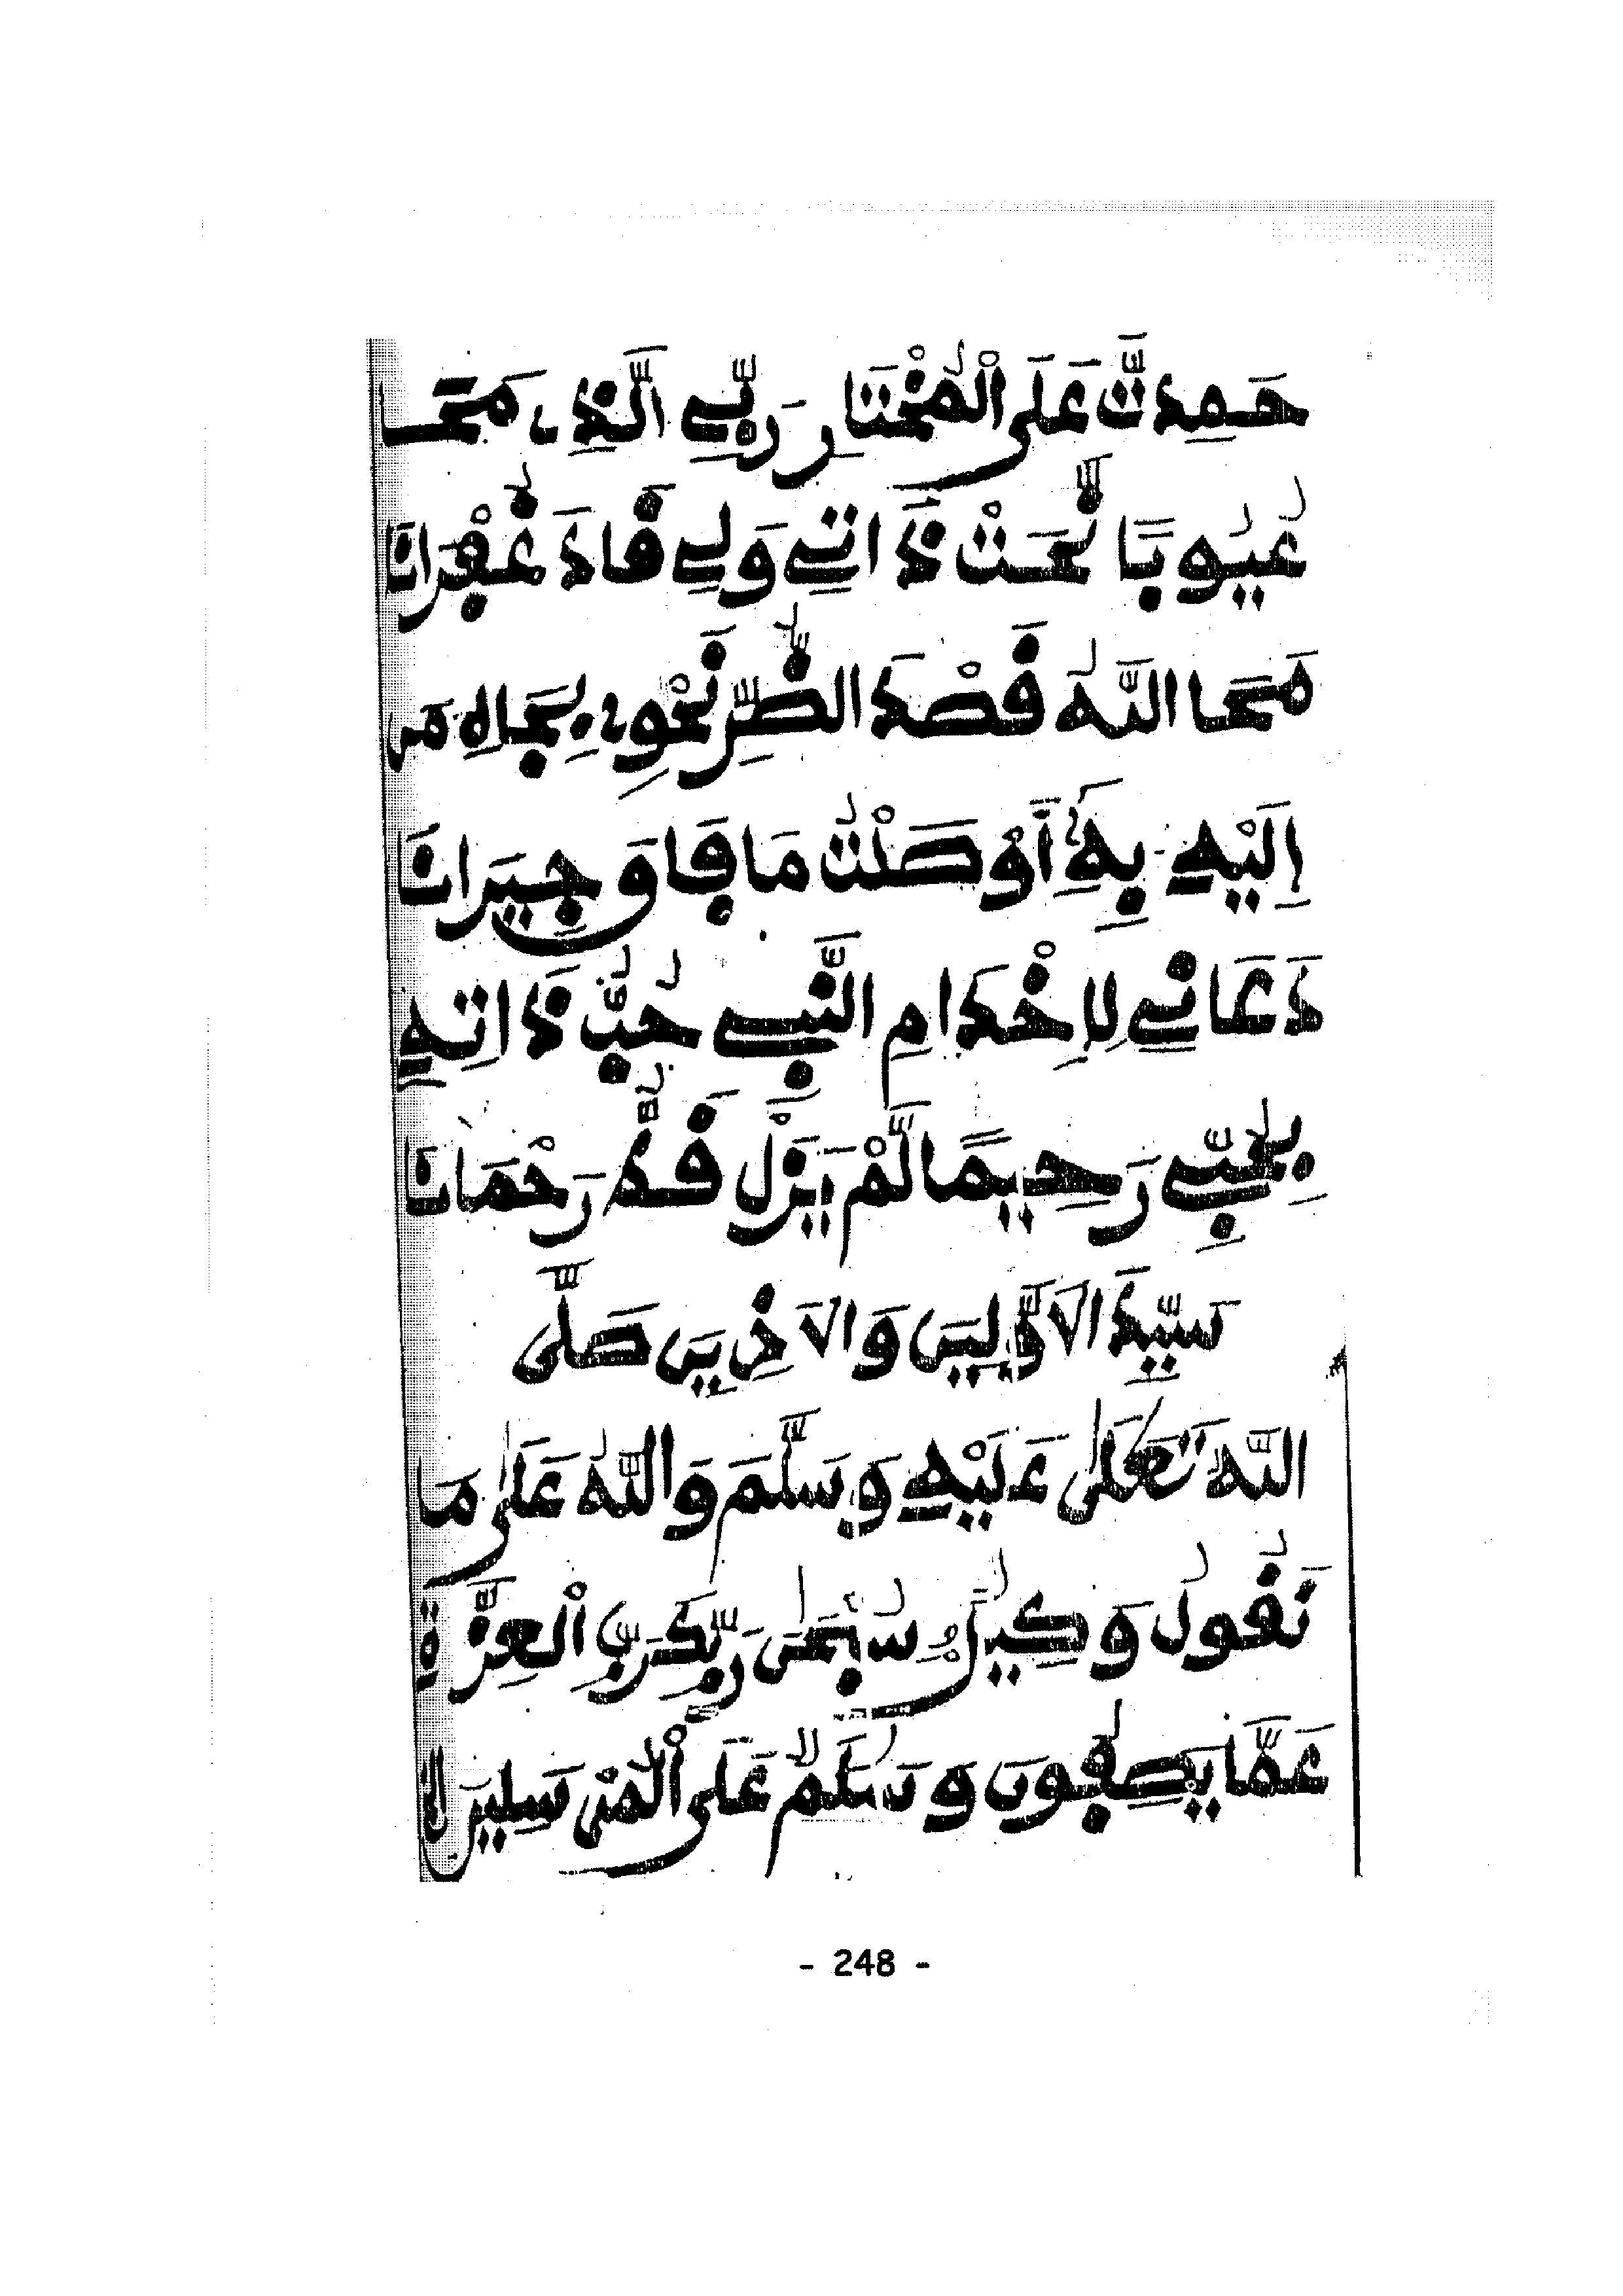 حَمِدتُّ عَلَى الْمُخْتَارِ رَبِّي الَّذِي مَحَا
عُيُوبًا نَّحَتْ ذَاتِي وَلِي قَادَ غُفْرَانَا
مَحَا اللَّهُ قَصْدَ الضُّرِّ نَحْوِي بِجَاهِ مَن
إِلَيْهِ بِهِ أَوْصَلْتُ مَا فَاقَ جِيرَانَا
دَعَانِي لِإِخْدَامِ النَّبِيِّ حُبُّ ذَاتِهِ
بِحُبِّي رَحِيمًا لَّمْ يَزَلْ قَدُّ رَحْمَانَا
سَيِّدَ الاَوَّلِينَ وَالاَخِرِينَ صَلَّى
اللَّهُ تَعَلَى عَلَيْهِ وَسَلَّمَ وَاللَّهُ عَلَى مَا
نَقُولُ وَكِيلٌ سُبْحَنَ رَبِّكَ رَبِّ الْعِزَّةِ
عَمَّا يَصِفُونَ وَسَلَمٌ عَلَى الْمُرْسَلِينَ
- 248 -